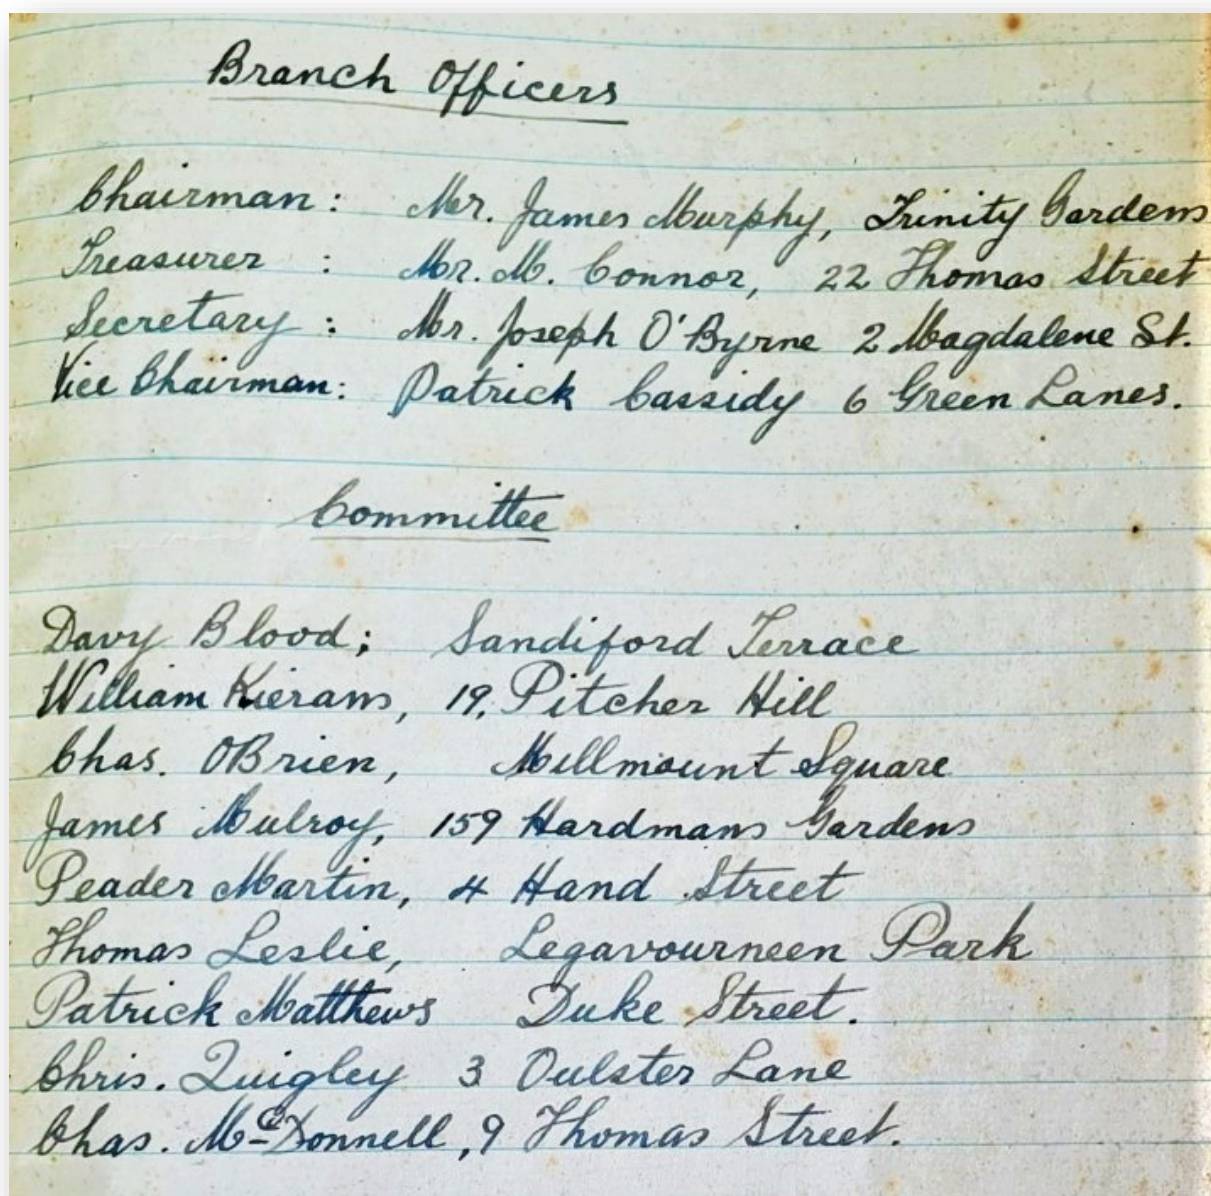 Branch Officers
Chairman : Mr. James Murphy, Trinity Gardens
Treasurer : Mr. M. Connor, 22 Thomas Street
Secretary : Mr. Joseph O'Byrne 2 Magdalene St.
Vice Chairman : Patrick Cassidy 6 Green Lanes.
Committee
Davy Blood; Sandiford Terrace
William Kierans, 19, Pitcher Hill
Chas. OBrien, Millmount Square
James Mulroy, 159 Hardmans Gardens
Peader Martin, 4 Hand Street
Thomas Leslie, Legavourneen Park
Patrick Matthews Duke Street.
Chris. Quigley 3 Oulster Lane
Chas. McDonnell, 9 Thomas Street.